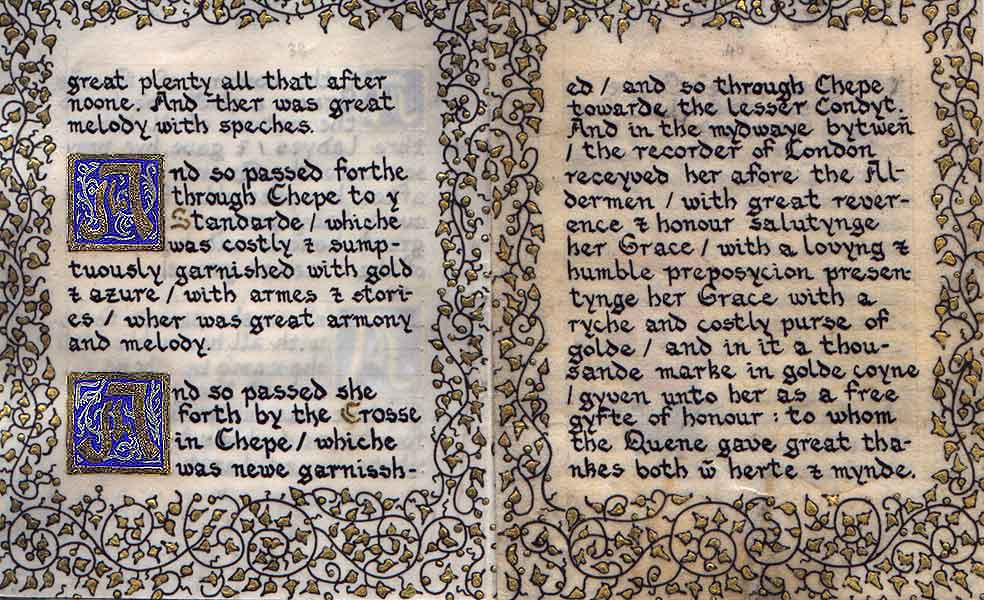 great plenty all that after
noone. And ther was great
melody with speches.
And so passed forthe
through Chepe to y
Standarde / whiche
was costly ⁊ sump-
tuously garnished with gold
⁊ azure / with armes ⁊ stori-
es / wher was great armony
and melody.
And so passed she
forth by the Crosse
in Chepe / whiche
was newe garnissh-
40
ed / and so through Chepe
towarde the lesser Condyt.
And in the mydwaye bytweñ
/ the recorder of London
receyved her afore the Al-
dermen / with great rever-
ence ⁊ honour salutynge
her Grace / with a lovyng ⁊
humble preposycion presen-
tynge her Grace with a
ryche and costly purse of
golde / and in it a thou-
sande marke in golde coyne
/ gyven unto her as a free
gyfte of honour : to whom
the Quene gave great tha-
nkes both w̃ herte ⁊ mynde.